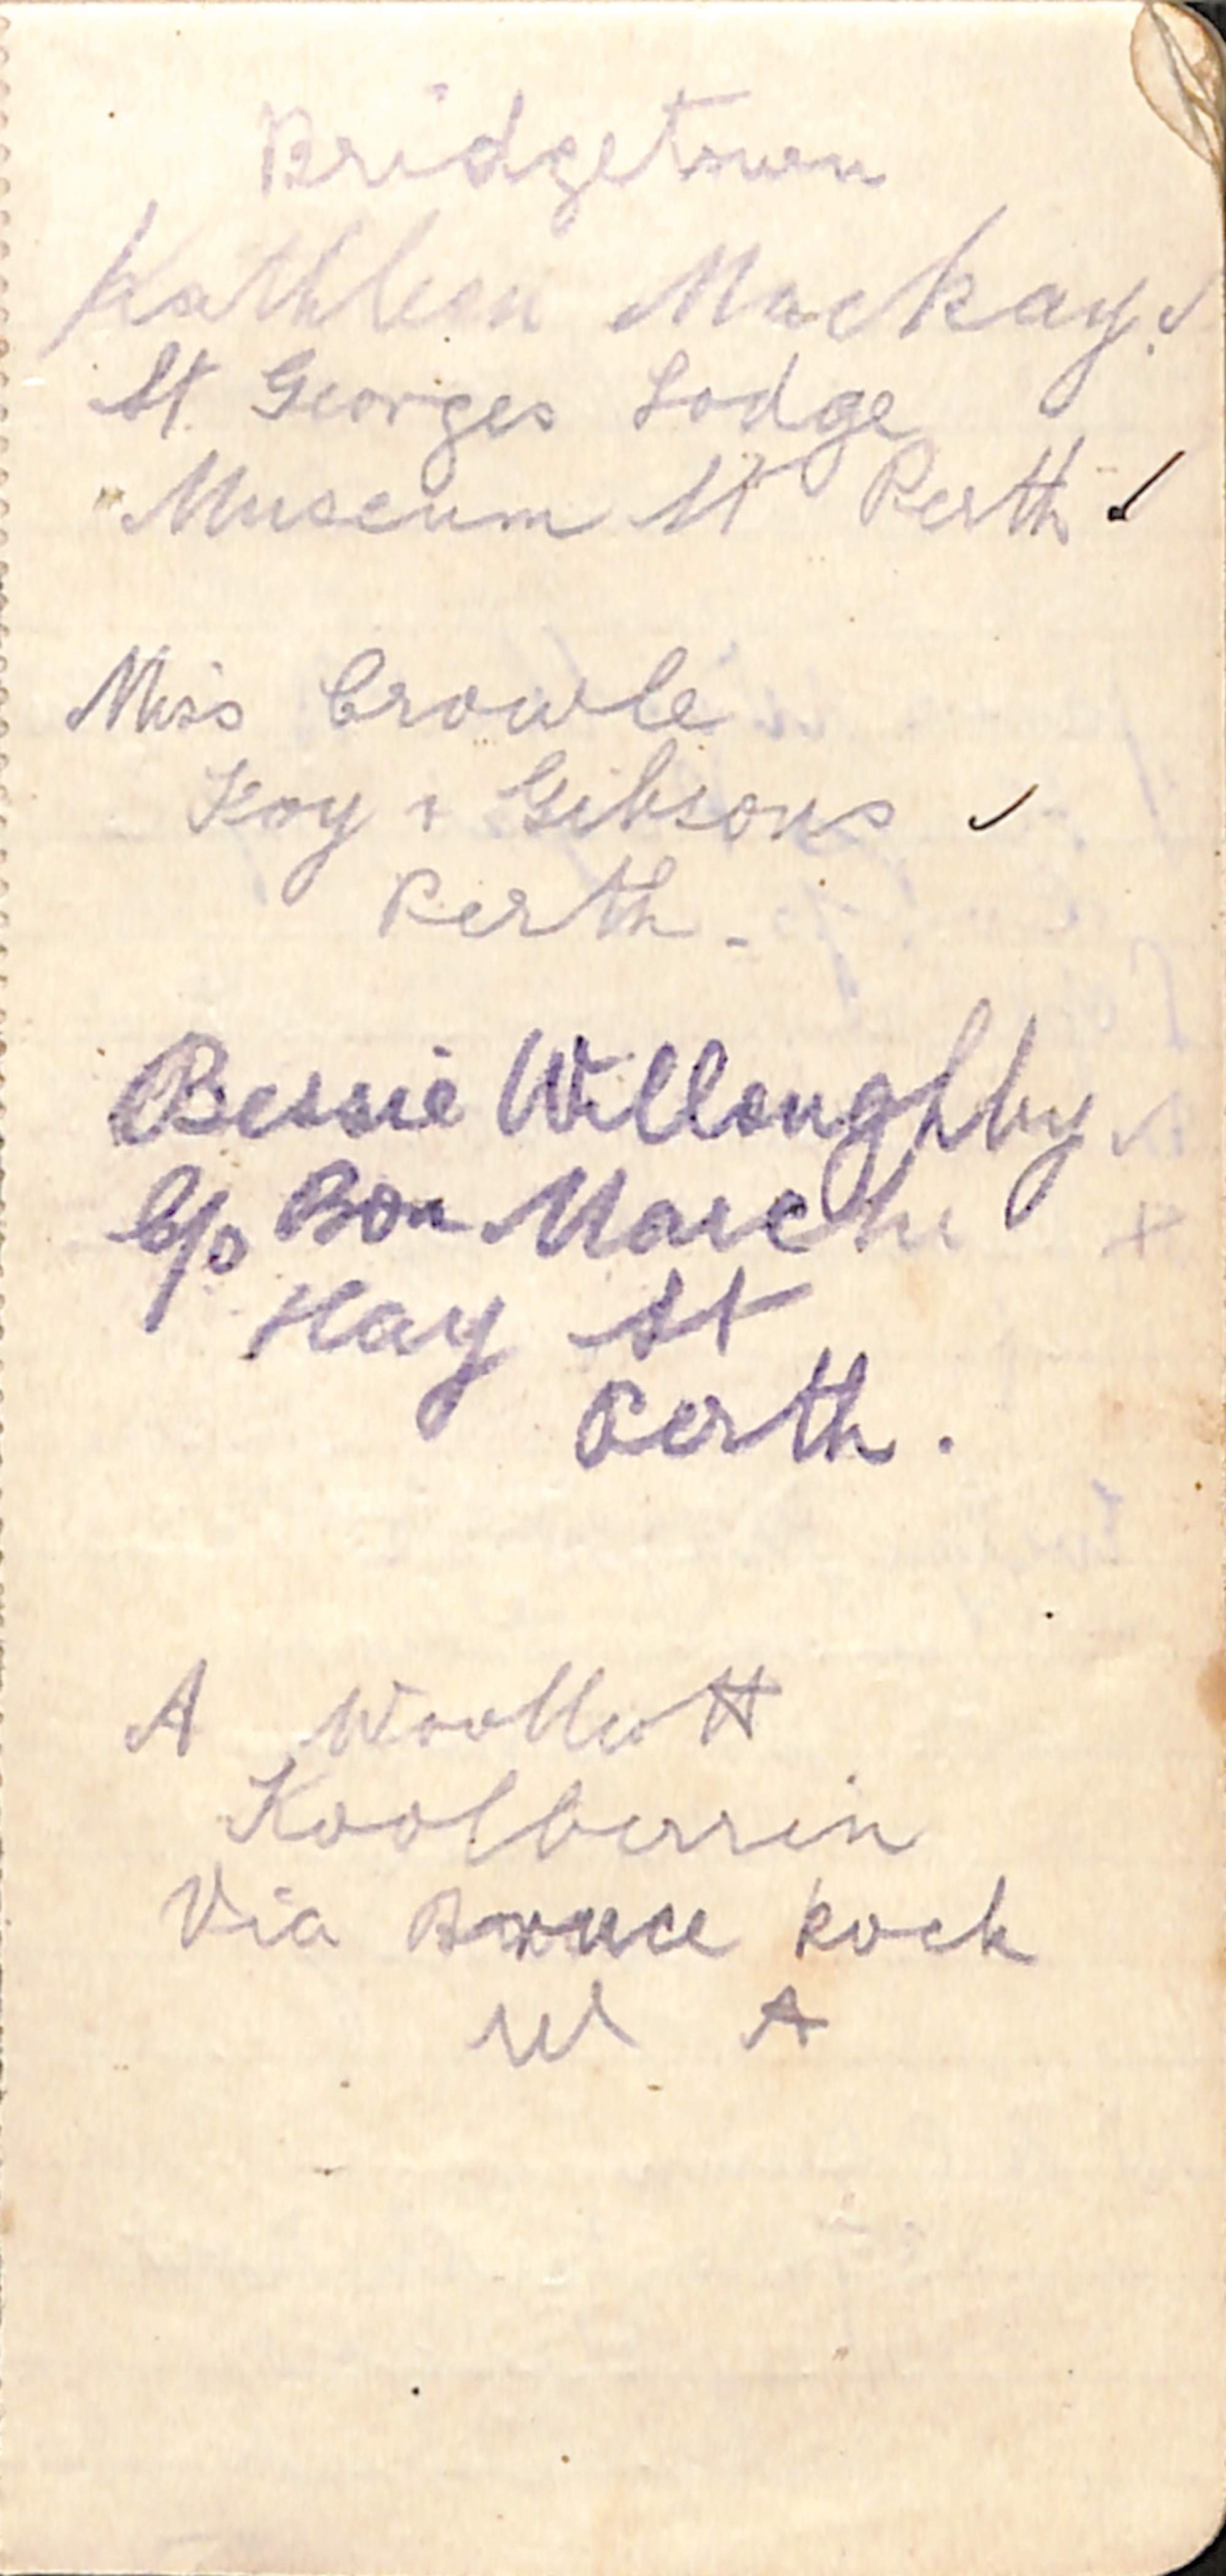 Bridgetown
Kathleen Mackay. ✓
St Georges Lodge
Museum St Perth ✓
Miss Crowle
Foy + Gibsons ✓
Perth.
Bessie Willoughby ✓
C/o Bon Marche +
Hay St
Perth.
A Woollett
Koolberrin
Via Bruce Rock
W A